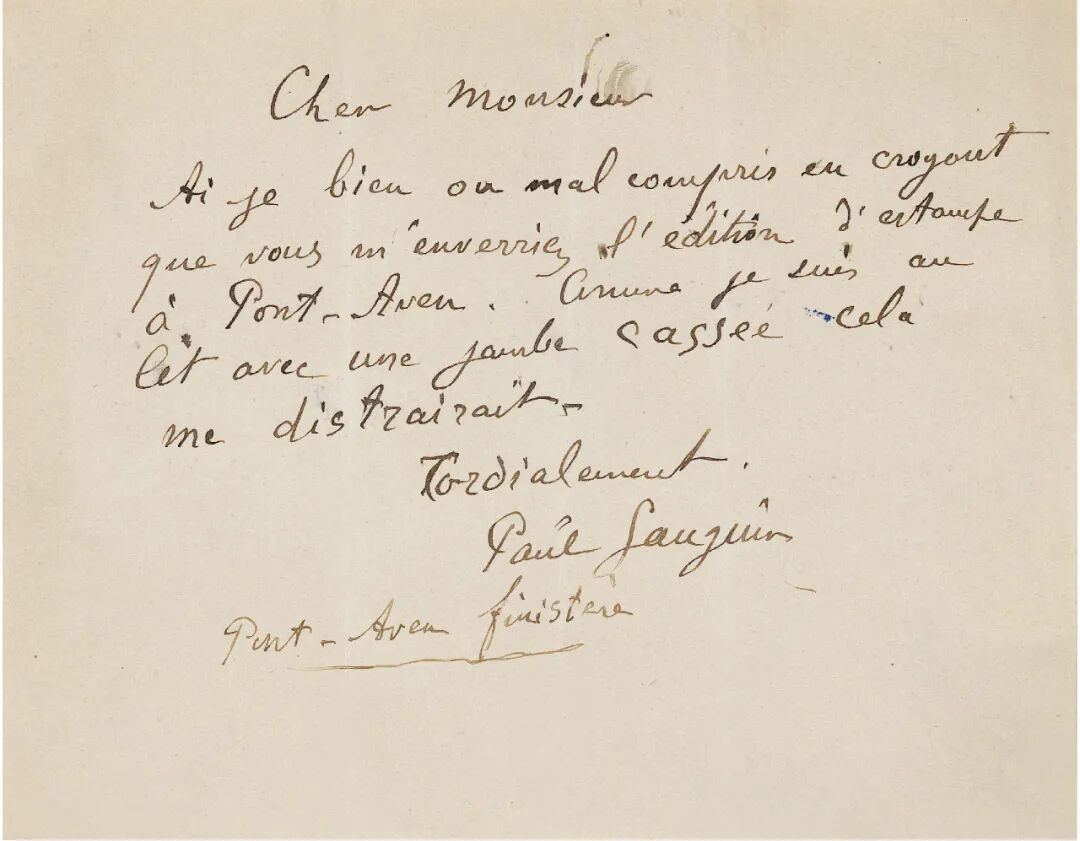 Cher Monsieur
Ai je bien ou mal compris en croyant
que vous m'enverriez l'édition d'estampe
à Pont-Aven. Comme je suis au
lit avec une jambe cassée cela
me distrairait-
Cordialement.
Paul Gauguin
Pont-Aven finistère